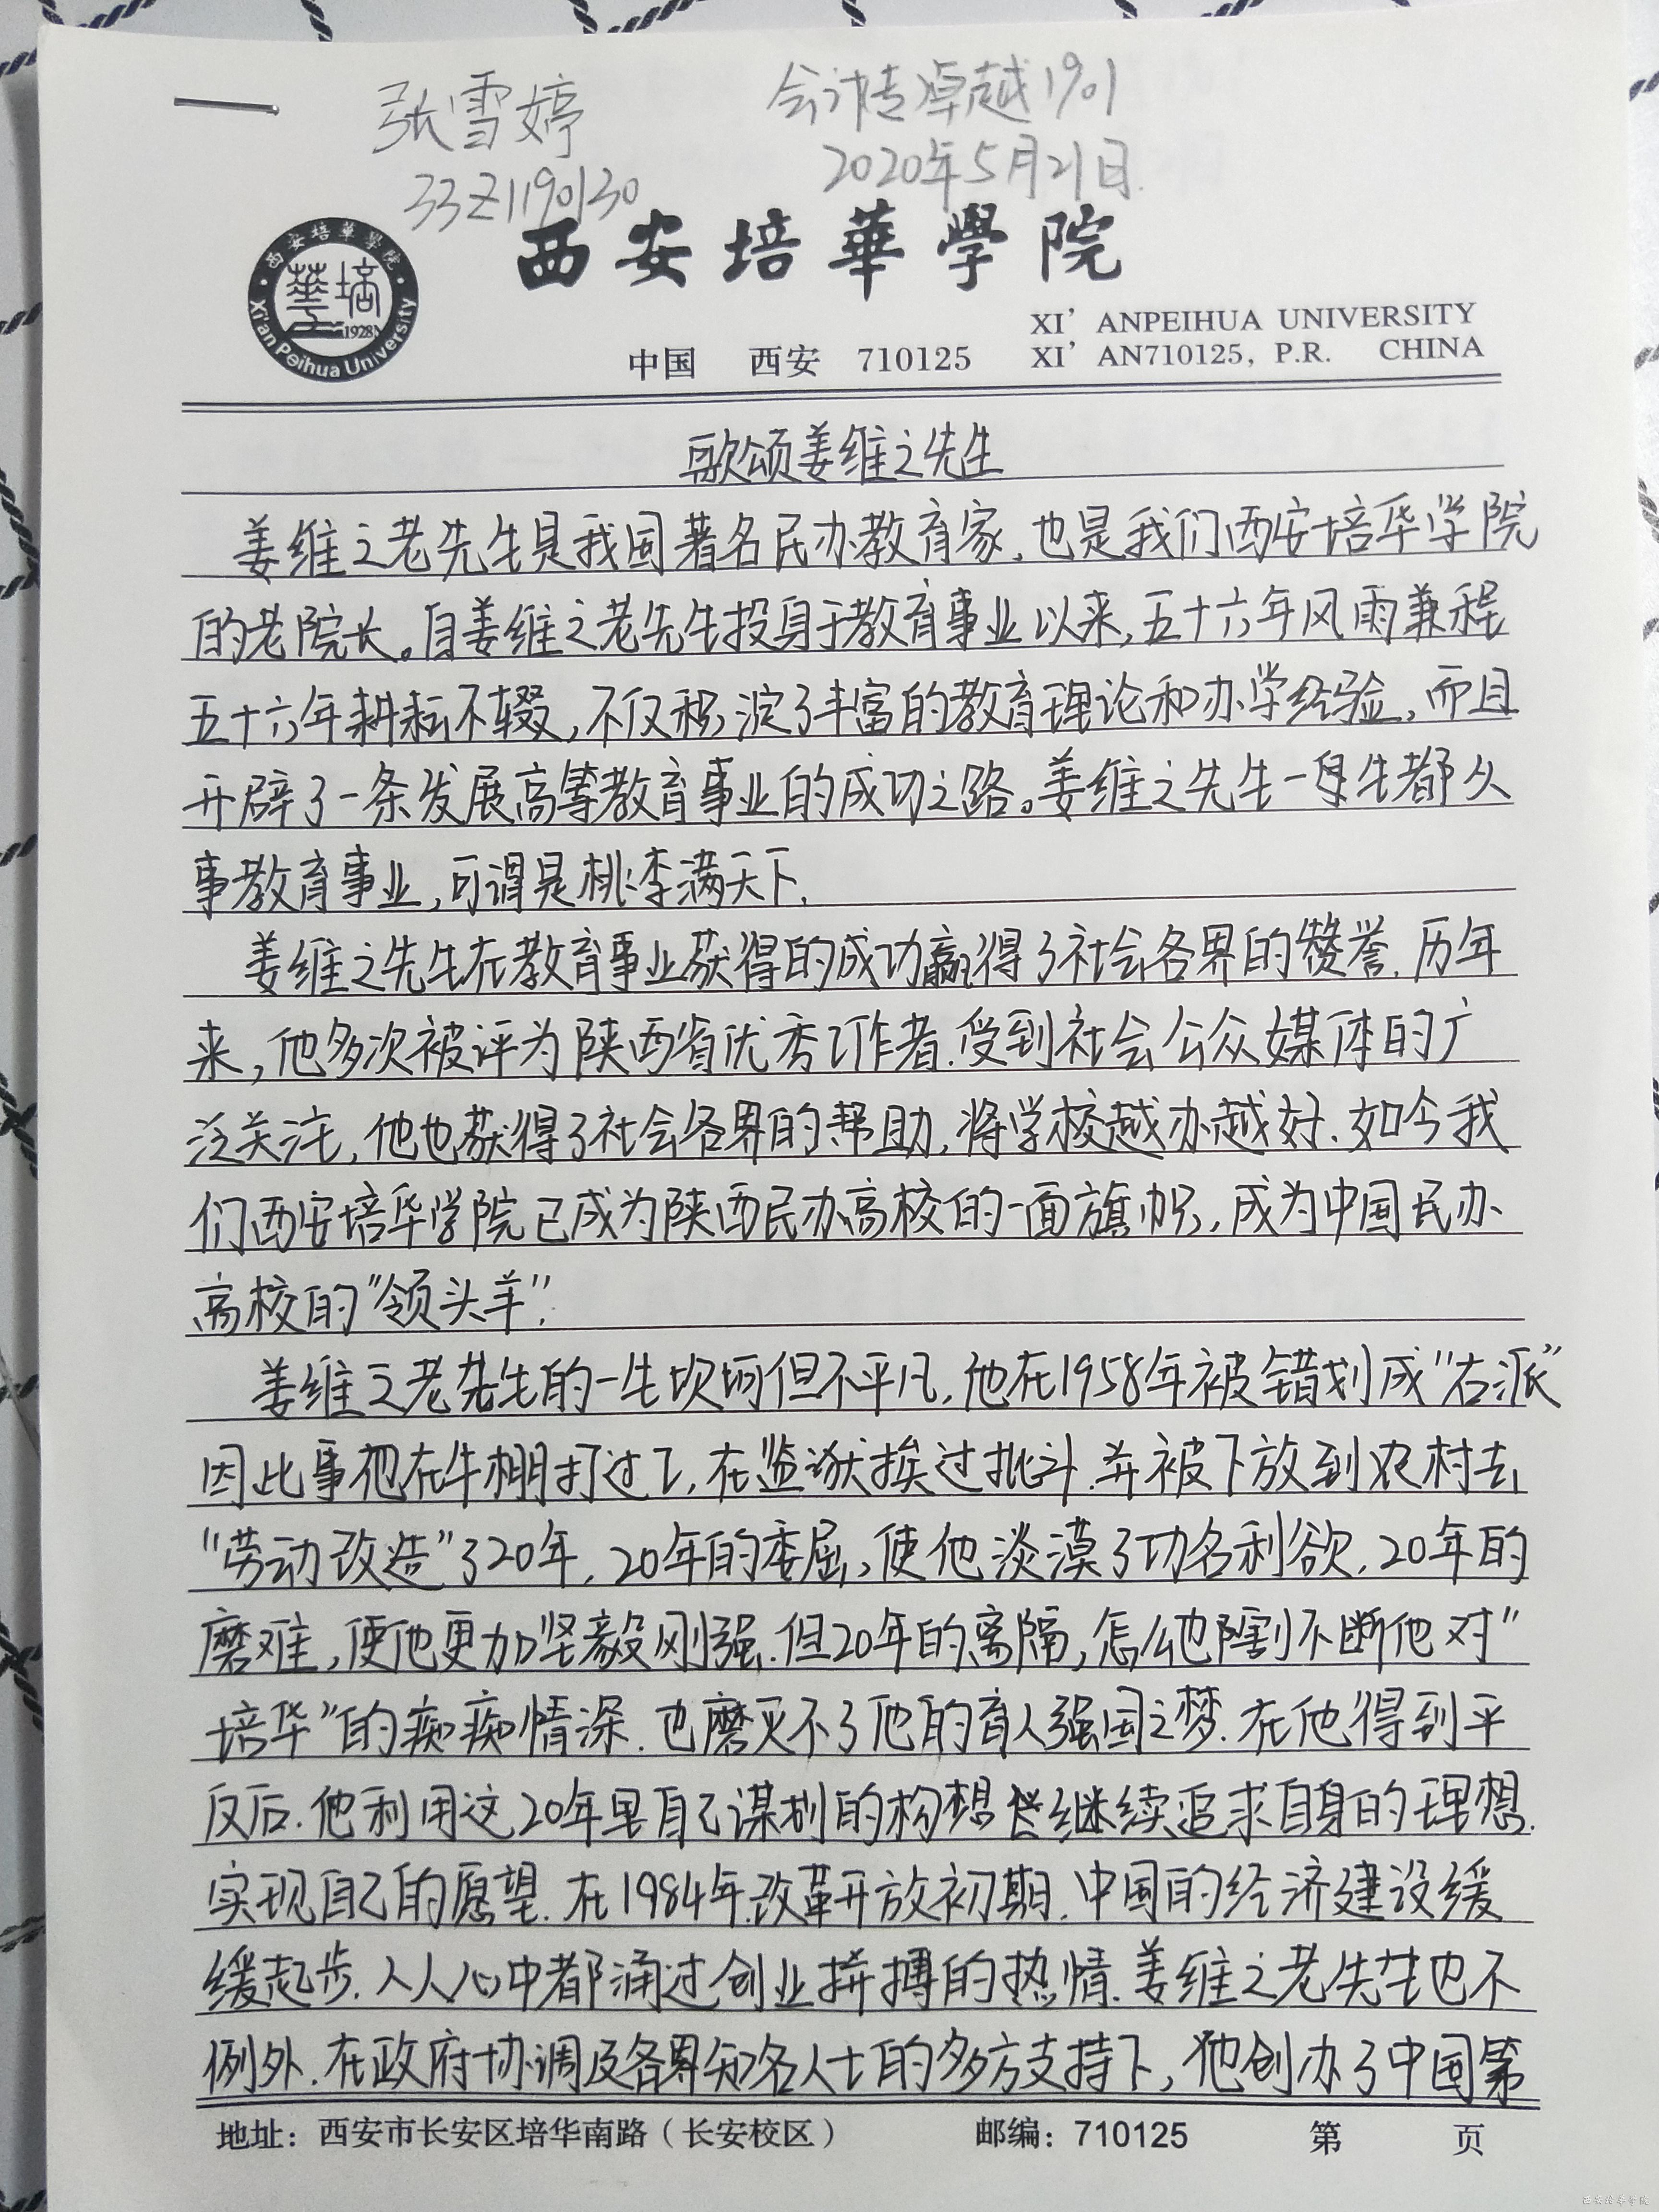 张雪婷
会计专卓越1901
33Z1190130
2020年5月21日.
西安培華學院
西安培華學院
華培
1928
Xi'an Peihua University
XI' ANPEIHUA UNIVERSITY
中国 西安 710125 XI' AN710125, P.R. CHINA
歌颂姜维之先生
姜维之老先生是我国著名民办教育家,也是我们西安培华学院
的老院长。自姜维之老先生投身于教育事业以来,五十六年风雨兼程
五十六年耕耘不辍,不仅积淀了丰富的教育理论和办学经验,而且
开辟了一条发展高等教育事业的成功之路。姜维之先生一生都从
事教育事业,可谓是桃李满天下.
姜维之先生在教育事业获得的成功赢得了社会各界的赞誉.历年
来,他多次被评为陕西省优秀工作者.受到社会公众媒体的广
泛关注,他也获得了社会各界的帮助,将学校越办越好.如今我
们西安培华学院已成为陕西民办高校的一面旗帜,成为中国民办
高校的"领头羊".
姜维之老先生的一生坎坷但不平凡,他在1958年被错划成"右派"
因此事他在牛棚打过工,在监狱挨过批斗.并被下放到农村去
"劳动改造"了20年,20年的委屈,使他淡漠了功名利欲,20年的
磨难,使他更加坚毅刚强.但20年的离隔,怎么也隔割不断他对"
培华"的痴痴情深.也磨灭不了他的育人强国之梦.在他得到平
反后.他利用这20年里自己谋划的构想继续追求自身的理想.
实现自己的愿望.在1984年.改革开放初期.中国的经济建设缓
缓起步.人人心中都涌过创业拼搏的热情.姜维之老先生也不
例外.在政府协调及各界知名人士的多方支持下,他创办了中国第
地址：西安市长安区培华南路（长安校区） 邮编：710125 第 页
西安培华学院